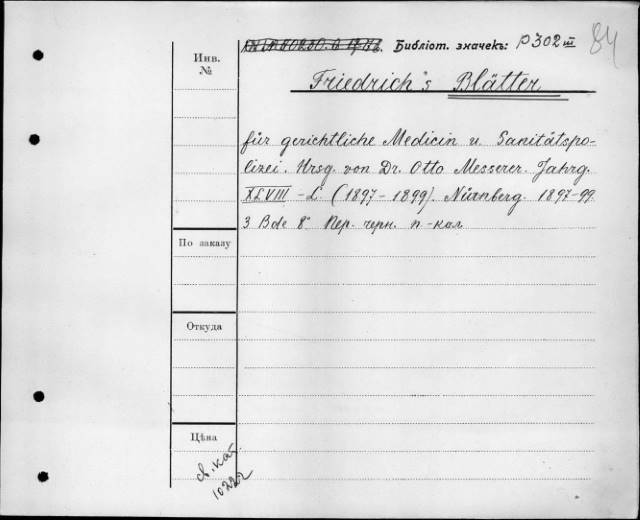 Библіот. значекъ: P302 III 84
Инв.
№
Friedrich's Blätter
für gerichtliche Medicin u. Sanitätspo-
lizei. Hrsg. von Dr. Otto Messerer. Jahrg.
XLVIII - L (1897 - 1899). Nürnberg. 1897-99.
3 Bde 8° Пер. черн. п.-кол.
По заказу
Откуда
Цѣна
св. кат.